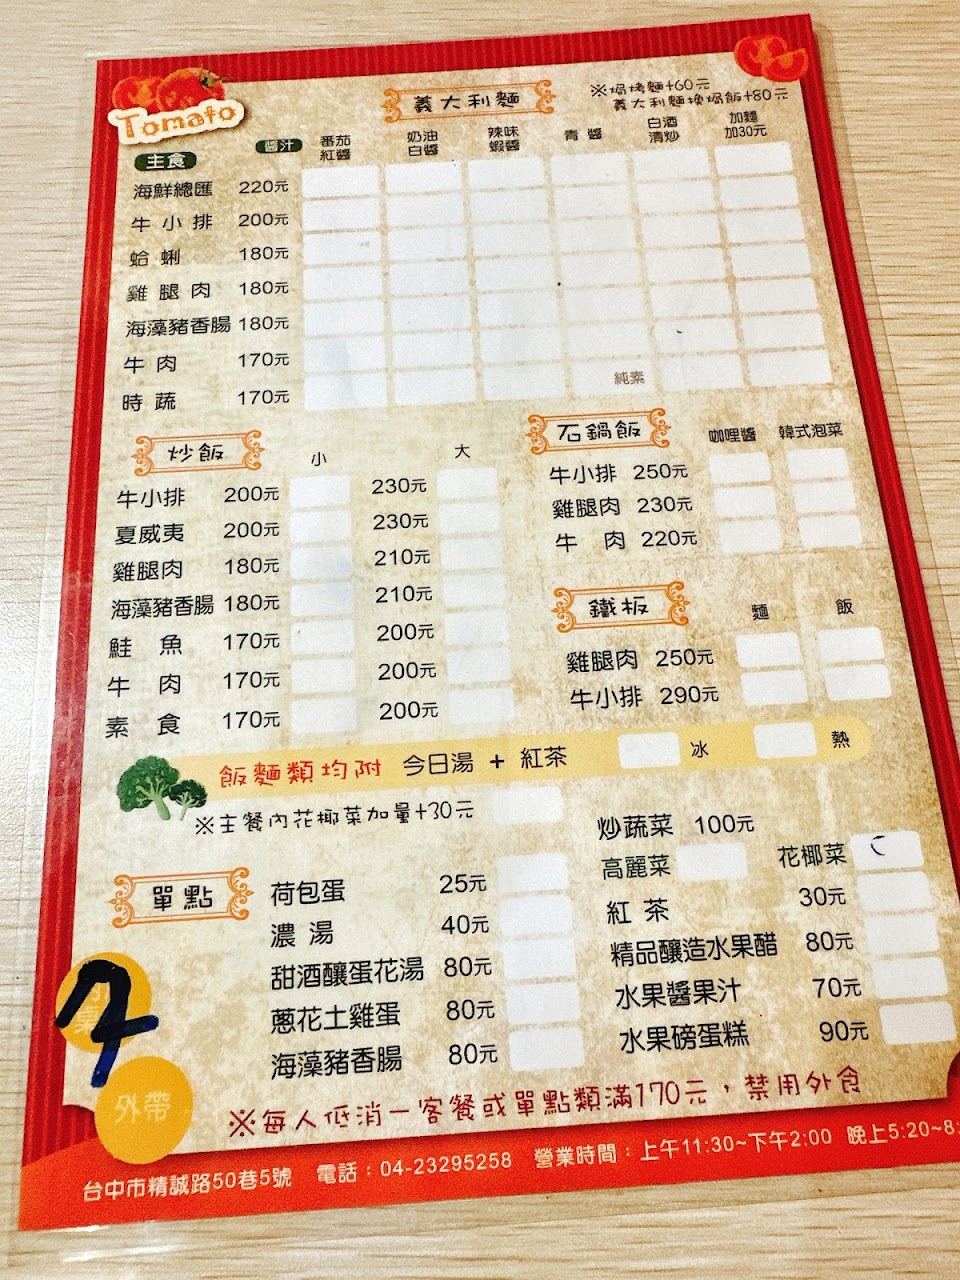 Tomato
義大利麵
※焗烤麵+60元
義大利麵換焗飯+80元
主食 醬汁 番茄紅醬 奶油白醬 辣味蝦醬 青醬 白酒清炒 加麵加30元
海鮮總匯 220元
牛小排 200元
蛤蜊 180元
雞腿肉 180元
海藻豬香腸 180元
牛肉 170元
時蔬 170元 純素
炒飯 小 大
牛小排 200元 230元
夏威夷 200元 230元
雞腿肉 180元 210元
海藻豬香腸 180元 210元
鮭魚 170元 200元
牛肉 170元 200元
素食 170元 200元
石鍋飯 咖哩醬 韓式泡菜
牛小排 250元
雞腿肉 230元
牛肉 220元
鐵板 麵 飯
雞腿肉 250元
牛小排 290元
飯麵類均附 今日湯 + 紅茶 冰 熱
※主餐內花椰菜加量+30元
單點
荷包蛋 25元
濃湯 40元
甜酒釀蛋花湯 80元
蔥花土雞蛋 80元
海藻豬香腸 80元
炒蔬菜 100元
高麗菜 花椰菜
紅茶 30元
精品釀造水果醋 80元
水果醬果汁 70元
水果磅蛋糕 90元
外帶
※每人低消一客餐或單點類滿170元，禁用外食
台中市精誠路50巷5號 電話：04-23295258 營業時間：上午11:30~下午2:00 晚上5:20~8: